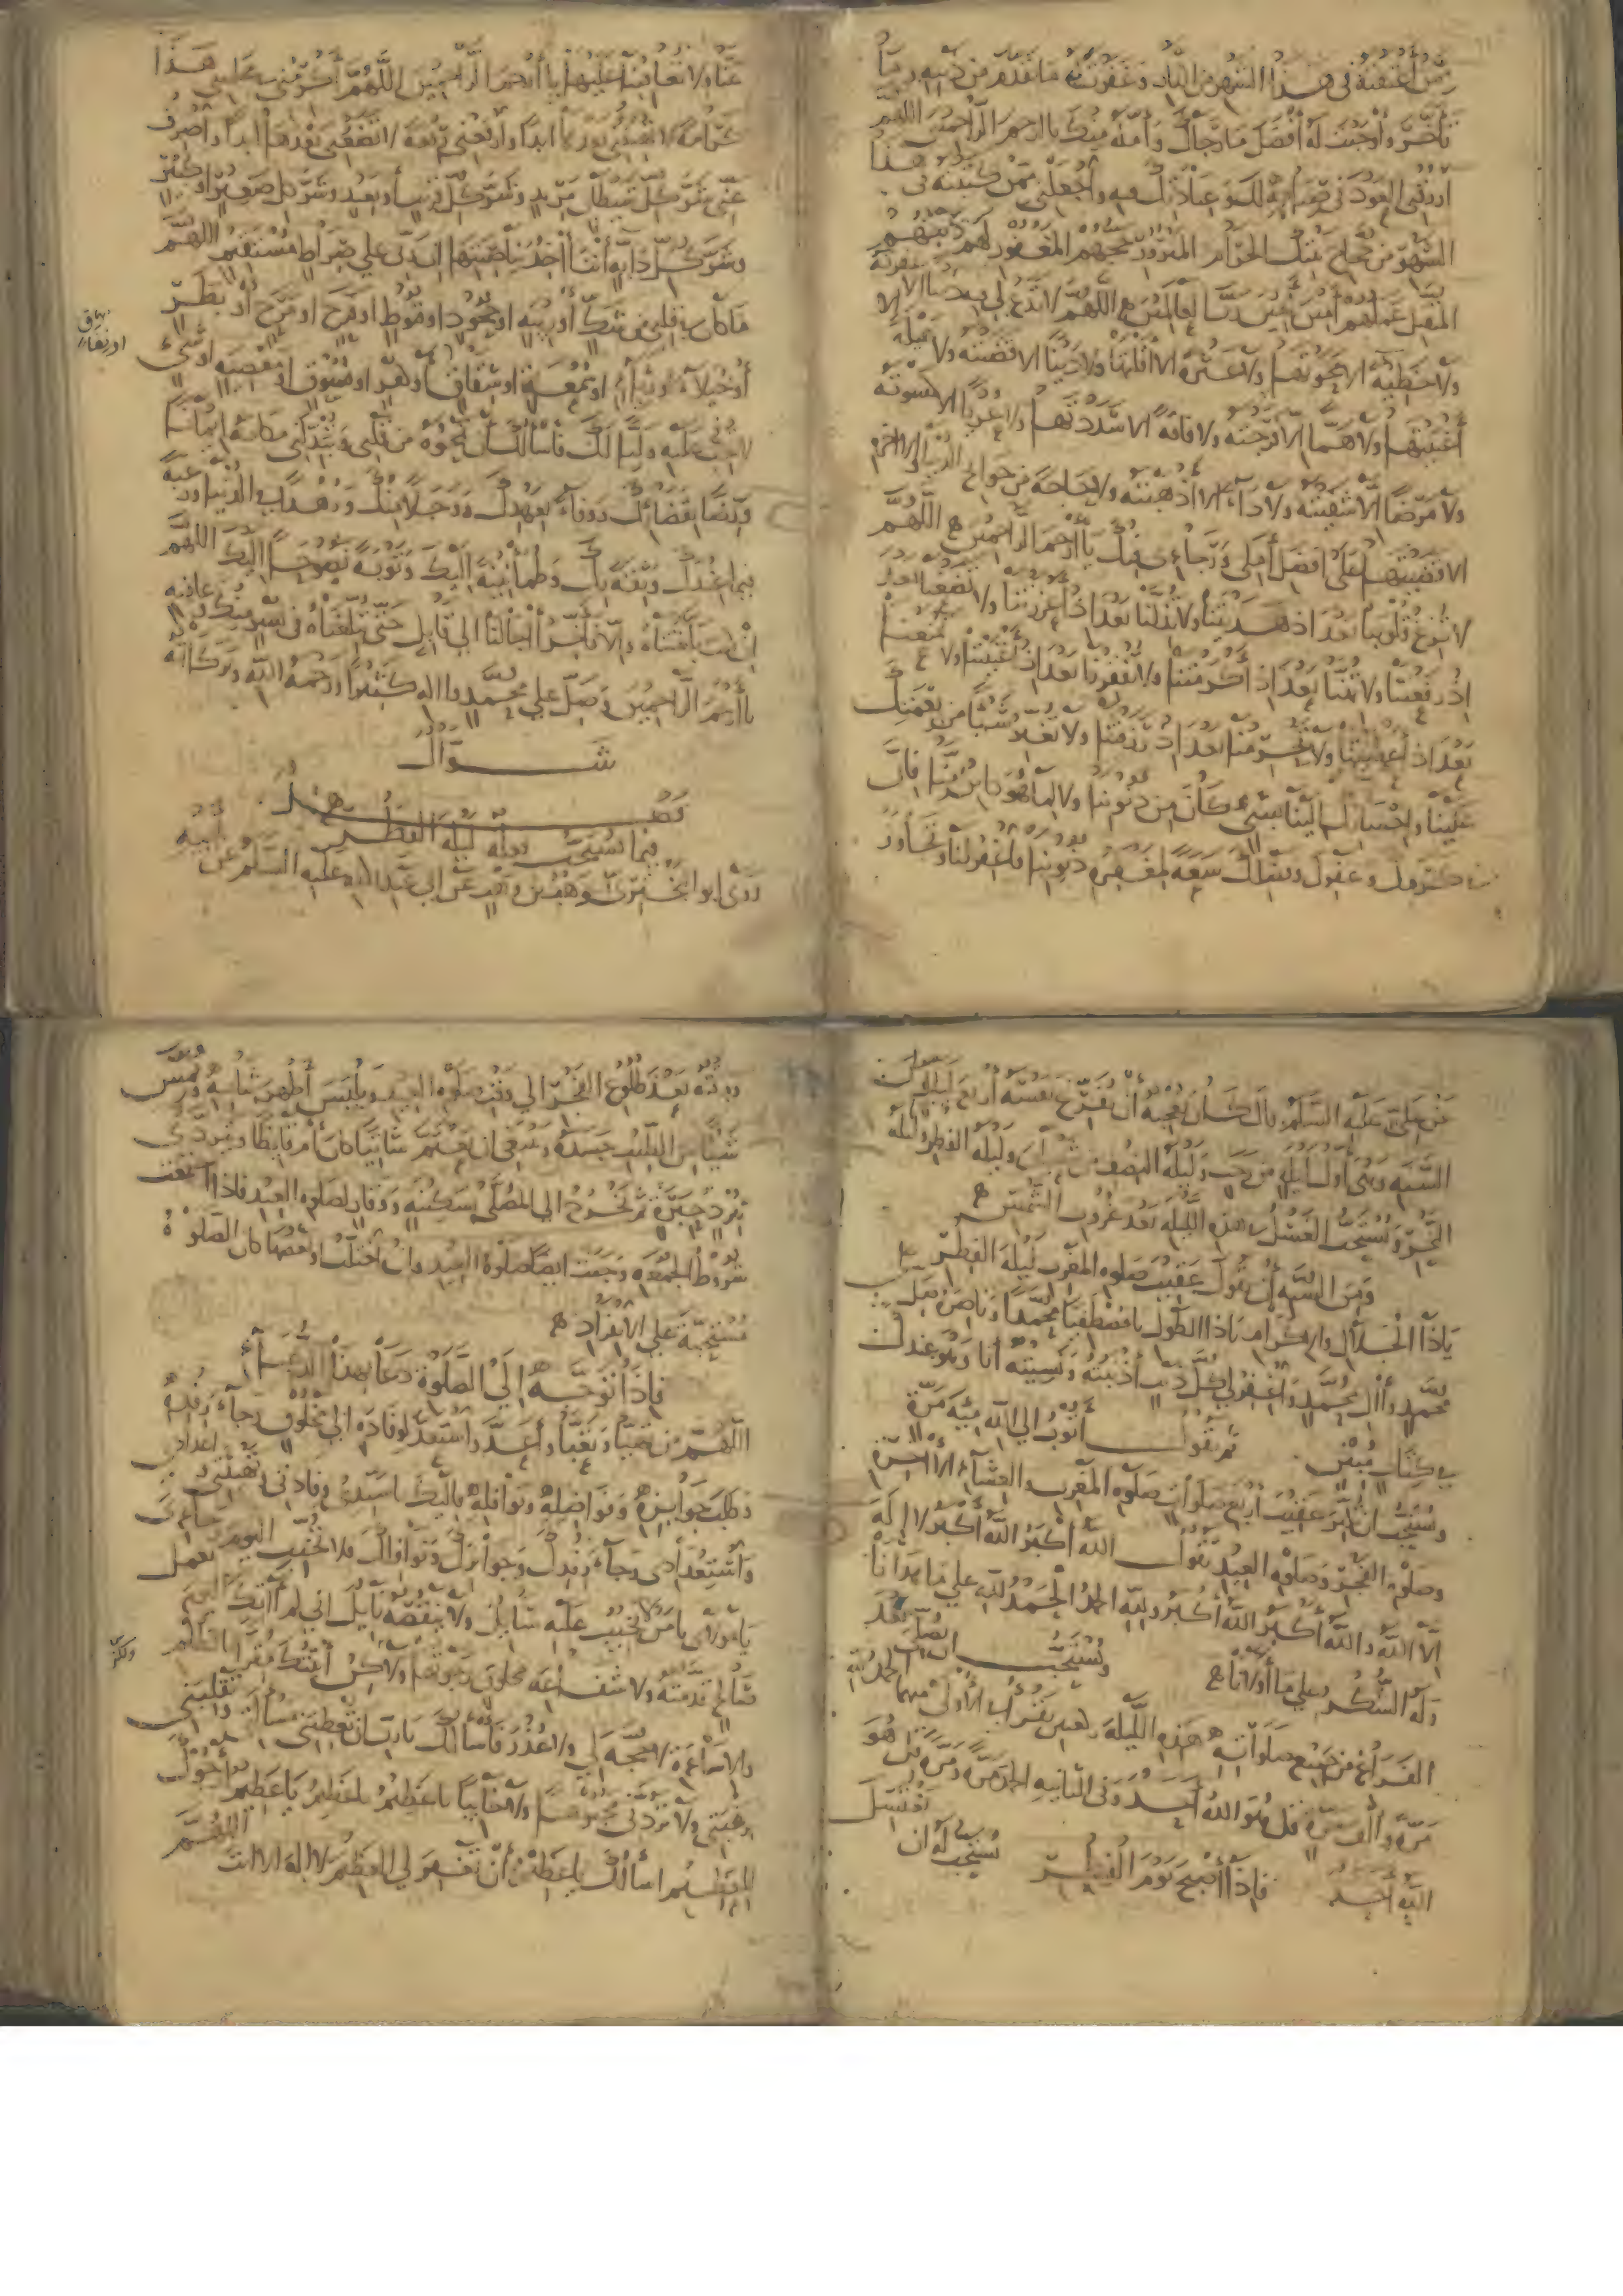 ممن أعتقته في هذا الشهر من النار وغفرت له ما تقدم من ذنبه وما
تأخر وأوجبت له أفضل ما رجاك وأمله منك يا أرحم الراحمين اللهم
ارزقني العود في صيامه لك وعبادتك فيه واجعلني ممن كتبته في هذا
الشهر من حجاج بيتك الحرام المبرور حجهم المغفور لهم ذنبهم
المتقبل عملهم آمين آمين رب العالمين اللهم لا تدع لي فيه ذنبا إلا غفرته
ولا خطيئة إلا محوتها ولا عثرة إلا أقلتها ولا دينا إلا قضيته ولا عيلة إلا
أغنيتها ولا هما إلا فرجته ولا فاقة إلا سددتها ولا عريا إلا كسوته
ولا مرضا إلا شفيته ولا داء إلا أذهبته ولا حاجة من حوائج الدنيا والآخرة
إلا قضيتها على أفضل أملي ورجائي فيك يا أرحم الراحمين اللهم
لا تزغ قلوبنا بعد إذ هديتنا ولا تذلنا بعد إذ أعززتنا ولا تضعنا بعد
إذ رفعتنا ولا تهنا بعد إذ أكرمتنا ولا تفقرنا بعد إذ أغنيتنا ولا تمنعنا
بعد إذ أعطيتنا ولا تحرمنا بعد إذ رزقتنا ولا تغير شيئا من نعمتك
علينا وإحسانك إلينا بشيء كان من ذنوبنا ولا لما هو كائن منا فإن
في كرمك وعفوك وفضلك سعة لمغفرة ذنوبنا فاغفر لنا وتجاوز
عنا ولا تعاقبنا عليها يا أرحم الراحمين اللهم أكرمني في مجلسي هذا
كرامة لا تهينني بعدها أبدا وارفعني رفعة لا تضعني بعدها أبدا واصرف
عني شر كل شيطان مريد وشر كل قريب أو بعيد وشر كل صغير أو كبير
وشر كل دابة أنت آخذ بناصيتها إن ربي على صراط مستقيم اللهم
ما كان في قلبي من شك أو ريبة أو جحود أو قنوط أو فرح أو مرح أو بطر
أو خيلاء أو رياء أو سمعة أو شقاق أو كفر أو فسوق أو معصية أو شيء
أو نفاق
لا تحب عليه وليا لك فأسألك أن تمحوه من قلبي وتبدلني مكانه إيمانا
ورضا بقضائك ووفاء بعهدك ووجلا منك وزهدا في الدنيا ورغبة
فيما عندك وثقة بك وطمأنينة إليك وتوبة نصوحا إليك اللهم
إن كنت بلغتناه وإلا فأخر آجالنا إلى قابل حتى تبلغناه في يسر منك وعافية
يا أرحم الراحمين وصل على محمد وآله كثيرا ورحمة الله وبركاته
شوال
فصل
فيما يستحب فعله ليلة الفطر
روى أبو البختري وهب بن وهب عن أبي عبد الله عليه السلم عن أبيه
عن علي عليه السلم قال كان يعجبه أن يفرغ نفسه أربع ليال من
السنة وهي أول ليلة من رجب وليلة النصف من شعبان وليلة الفطر وليلة
النحر ويستحب الغسل في هذه الليلة بعد غروب الشمس
ومن السنة أن يقول عقيب صلوة المغرب ليلة الفطر
ياذا الجلال والإكرام ياذا الطول يا مصطفيا محمدا وناصره صل على
محمد وآل محمد واغفر لي كل ذنب أذنبته ونسيته أنا وهو عندك
في كتاب مبين ثم يقول أتوب إلى الله مئة مرة
ويستحب أن يكبر عقيب أربع صلوات صلوة المغرب والعشاء الآخرة
وصلوة الفجر وصلوة العيد يقول الله أكبر الله أكبر لا إله
إلا الله والله أكبر الله أكبر ولله الحمد الحمد لله على ما هدانا
وله الشكر على ما أولانا ويستحب أن يصلي بعد
الفراغ من جميع صلواته هذه الليلة ركعتين يقرأ في الأولى منهما الحمد
مرة وألف مرة قل هو الله أحد وفي الثانية الحمد مرة ومرة قل هو
الله أحد فإذا أصبح يوم الفطر يستحب له أن يغتسل
ووقته بعد طلوع الفجر إلى وقت صلوة العيد ويلبس أطهر ثيابه ويمس
شيئا من الطيب جسده وينبغي أن يعتم شاتيا كان أم قائظا ويتردى
ببرد حبرة ثم يخرج إلى المصلى بسكينة ووقار لصلوة العيد فإذا اجتمعت
شروط الجمعة وجبت أيضا صلوة العيد وإن اختلت أو بعضها كان الصلوة
مستحبة على الانفراد
فإذا توجه إلى الصلوة دعا بهذا الدعاء
اللهم من تهيأ وتعبأ وأعد واستعد لوفادة إلى مخلوق رجاء رفده
وطلب جوائزه وفواضله ونوافله فإليك يا سيدي وفادتي وتهيئتي وإعدادي
واستعدادي رجاء رفدك وجوائزك ونوافلك فلا تخيب اليوم رجائي
يا مولاي يا من لا يخيب عليه سائل ولا ينقصه نائل إني لم آتك اليوم بعمل
صالح قدمته ولا شفاعة مخلوق رجوته ولكن أتيتك مقرا بالظلم
ولكن
والإساءة لا حجة لي ولا عذر فأسألك يا رب أن تعطيني مسألتي وتقلبني
برغبتي ولا تردني مجبوها ولا خائبا يا عظيم يا عظيم يا عظيم أرجوك
للعظيم أسألك يا عظيم أن تغفر لي العظيم لا إله إلا أنت اللهم